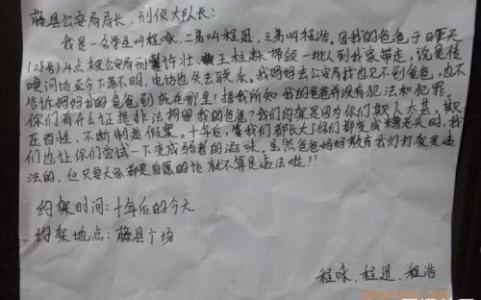 藤县公安局局长，刑侦大队长：
我是一名学生叫程咏，二弟叫程迅，三弟叫程浩。因我的爸爸于昨天
(21号)4点被公安局刑警许壮、王柱林带领一批人到我家带走，说是传
唤问话至今下落不明，电话也失去联系，我妈妈去公安局找也见不到爸爸，也不
告诉妈妈我的爸爸到底在哪里！据我所知我的爸爸并没有犯法和犯罪，
你们有什么证据非法拘留我的爸爸？我们约架是因为你们欺人太甚，欺
压百姓，不断制造假案，十年后，等我们都长大了你们都变成糟老头时，我
们也让你们尝试一下变成弱者的滋味。虽然爸爸妈妈教育我们打架是违
法的，但只要大家都是自愿的话就不算是违法啦！！
约架时间：十年后的今天
约架地点：藤县广场
程咏、程迅、程浩